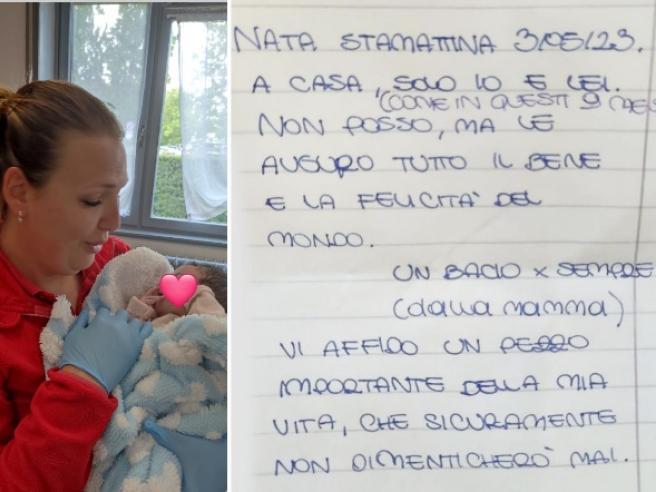 NATA STAMATTINA 3/05/23.
A CASA, SOLO IO E LEI.
(COME IN QUESTI 9 MESI
NON POSSO, MA LE
AUGURO TUTTO IL BENE
E LA FELICITA' DEL
MONDO.
UN BACIO x SEMPRE
(dalla mamma)
VI AFFIDO UN PEZZO
IMPORTANTE DELLA MIA
VITA, CHE SICURAMENTE
NON DIMENTICHERO' MAI.